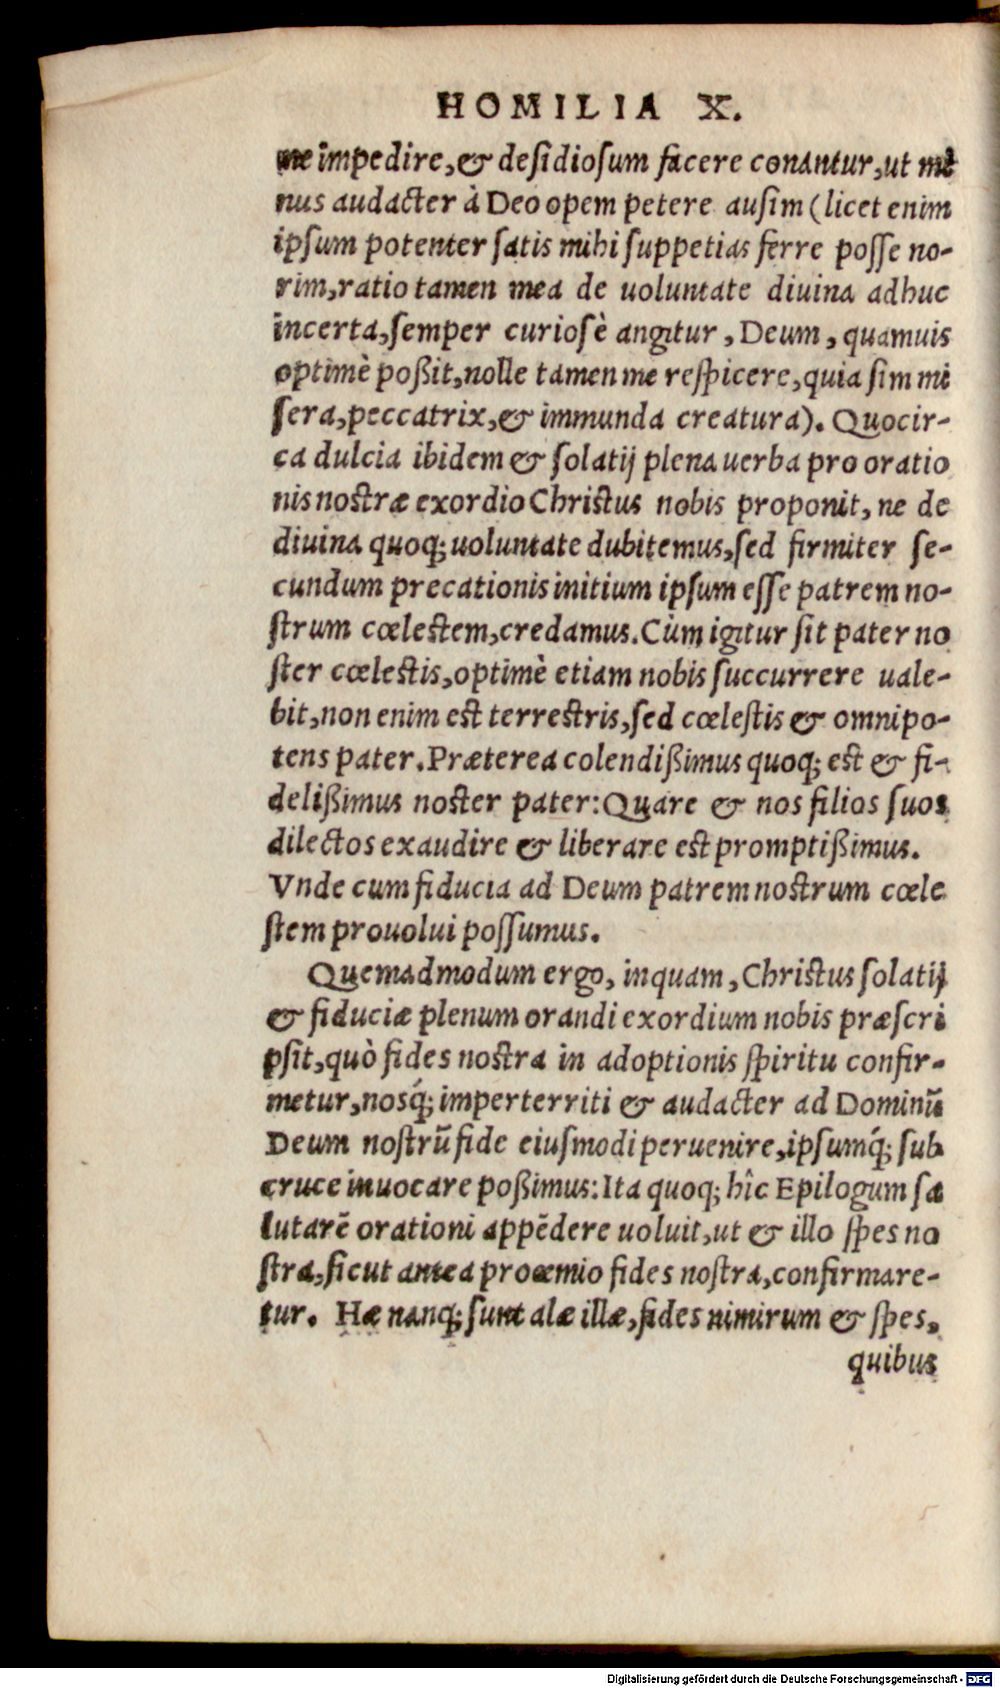 HOMILIA X.
me impedire, & desidiosum facere conantur, ut mi
nus audacter à Deo opem petere ausim (licet enim
ipsum potenter satis mihi suppetias ferre posse no-
rim, ratio tamen mea de uoluntate diuina adhuc
incerta, semper curiosè angitur, Deum, quamuis
optimè poßit, nolle tamen me respicere, quia sim mi
sera, peccatrix, & immunda creatura). Quocir-
ca dulcia ibidem & solatij plena uerba pro oratio
nis nostræ exordio Christus nobis proponit, ne de
diuina quoq; uoluntate dubitemus, sed firmiter se-
cundum precationis initium ipsum esse patrem no-
strum cœlestem, credamus. Cùm igitur sit pater no
ster cœlestis, optimè etiam nobis succurrere uale-
bit, non enim est terrestris, sed cœlestis & omnipo-
tens pater. Præterea colendißimus quoq; est & fi-
delißimus noster pater: Quare & nos filios suos
dilectos exaudire & liberare est promptißimus.
Vnde cum fiducia ad Deum patrem nostrum cœle
stem prouolui possumus.
Quemadmodum ergo, inquam, Christus solatij
& fiduciæ plenum orandi exordium nobis præscri
psit, quò fides nostra in adoptionis spiritu confir-
metur, nosq́; imperterriti & audacter ad Dominũ
Deum nostrũ fide eiusmodi peruenire, ipsumq́; sub
cruce inuocare poßimus: Ita quoq; hîc Epilogum sa
lutarẽ orationi appẽdere uoluit, ut & illo spes no
stra, sicut antea proœmio fides nostra, confirmare-
tur. Hæ nanq; sunt alæ illæ, fides nimirum & spes,
quibus
Digitalisierung gefördert durch die Deutsche Forschungsgemeinschaft - DFG